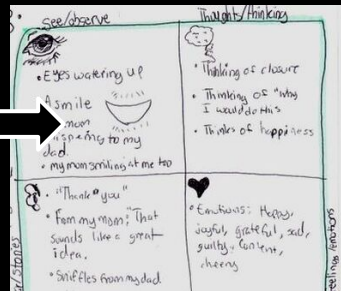 See/observe
• Eyes watering up
A smile
mom
whispering to my
dad.
• my mom smiling at me too
Thoughts/thinking
• Thinking of closure
• Thinking of "why
I would do this
• Thinks of happiness
• "Thank you"
• From my mom, "That
sounds like a great
idea.
• Sniffles from my dad
• Emotions: Happy,
joyful, grateful, sad,
guilty, content,
cheery
feelings/emotions